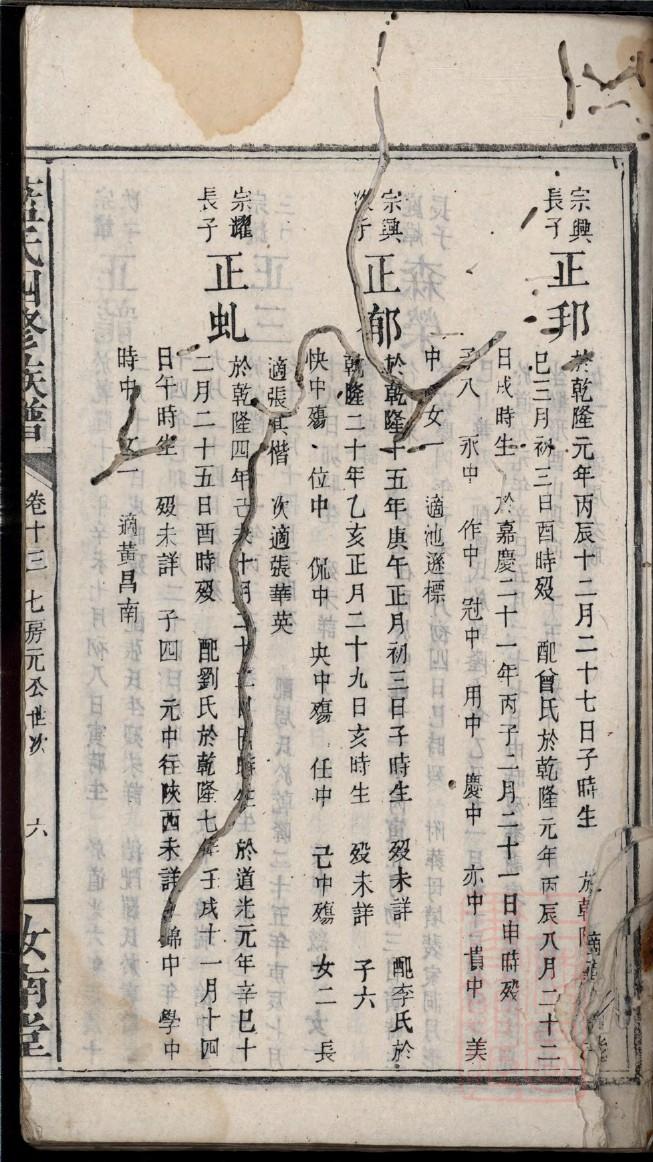 宗興長子 正邦
於乾隆元年丙辰十二月二十七日子時生 於乾隆
巳三月初三日酉時殁 配曾氏於乾隆元年丙辰八月二十二
日戌時生 於嘉慶二十一年丙子二月二十一日申時殁
子八 永中 作中 冠中 用中 慶中 亦中 貫中 美
中 女一 適池遜標
宗興次子 正郁
於乾隆十五年庚午正月初三日子時生 殁未詳 配李氏於
乾隆二十年乙亥正月二十九日亥時生 殁未詳 子六
快中殤 位中 侃中 央中殤 任中 己中殤 女二 長
適張其楷 次適張華英
宗耀長子 正虬
於乾隆四年己未十月二十 時生 於道光元年辛巳十
二月二十五日酉時殁 配劉氏於乾隆七年壬戌十一月十四
日午時生 殁未詳 子四 元中往陝西未詳 錦中 學中
時中 女一 適黃昌南
藍氏四修族譜 卷十三 七房元公世次 六 汝南堂